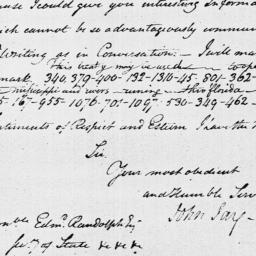 I could give you interesting Informa
which cannot be so advantageously commun
Writing as in Conversation. — I will ma
This treaty may be used to ope
mark. 340. 379-400 132-1310-45. 801-362-
Mississippi and rivers runing Thro florida
5-167-955-1076. 701-1097. 530-349-462-
timents of Respect and Esteem I have the h
Sir
Your most obedient
and Humble Serv
John Jay.
ble Edmd. Randolph Esqr.
Secy. of State &c &c &c.